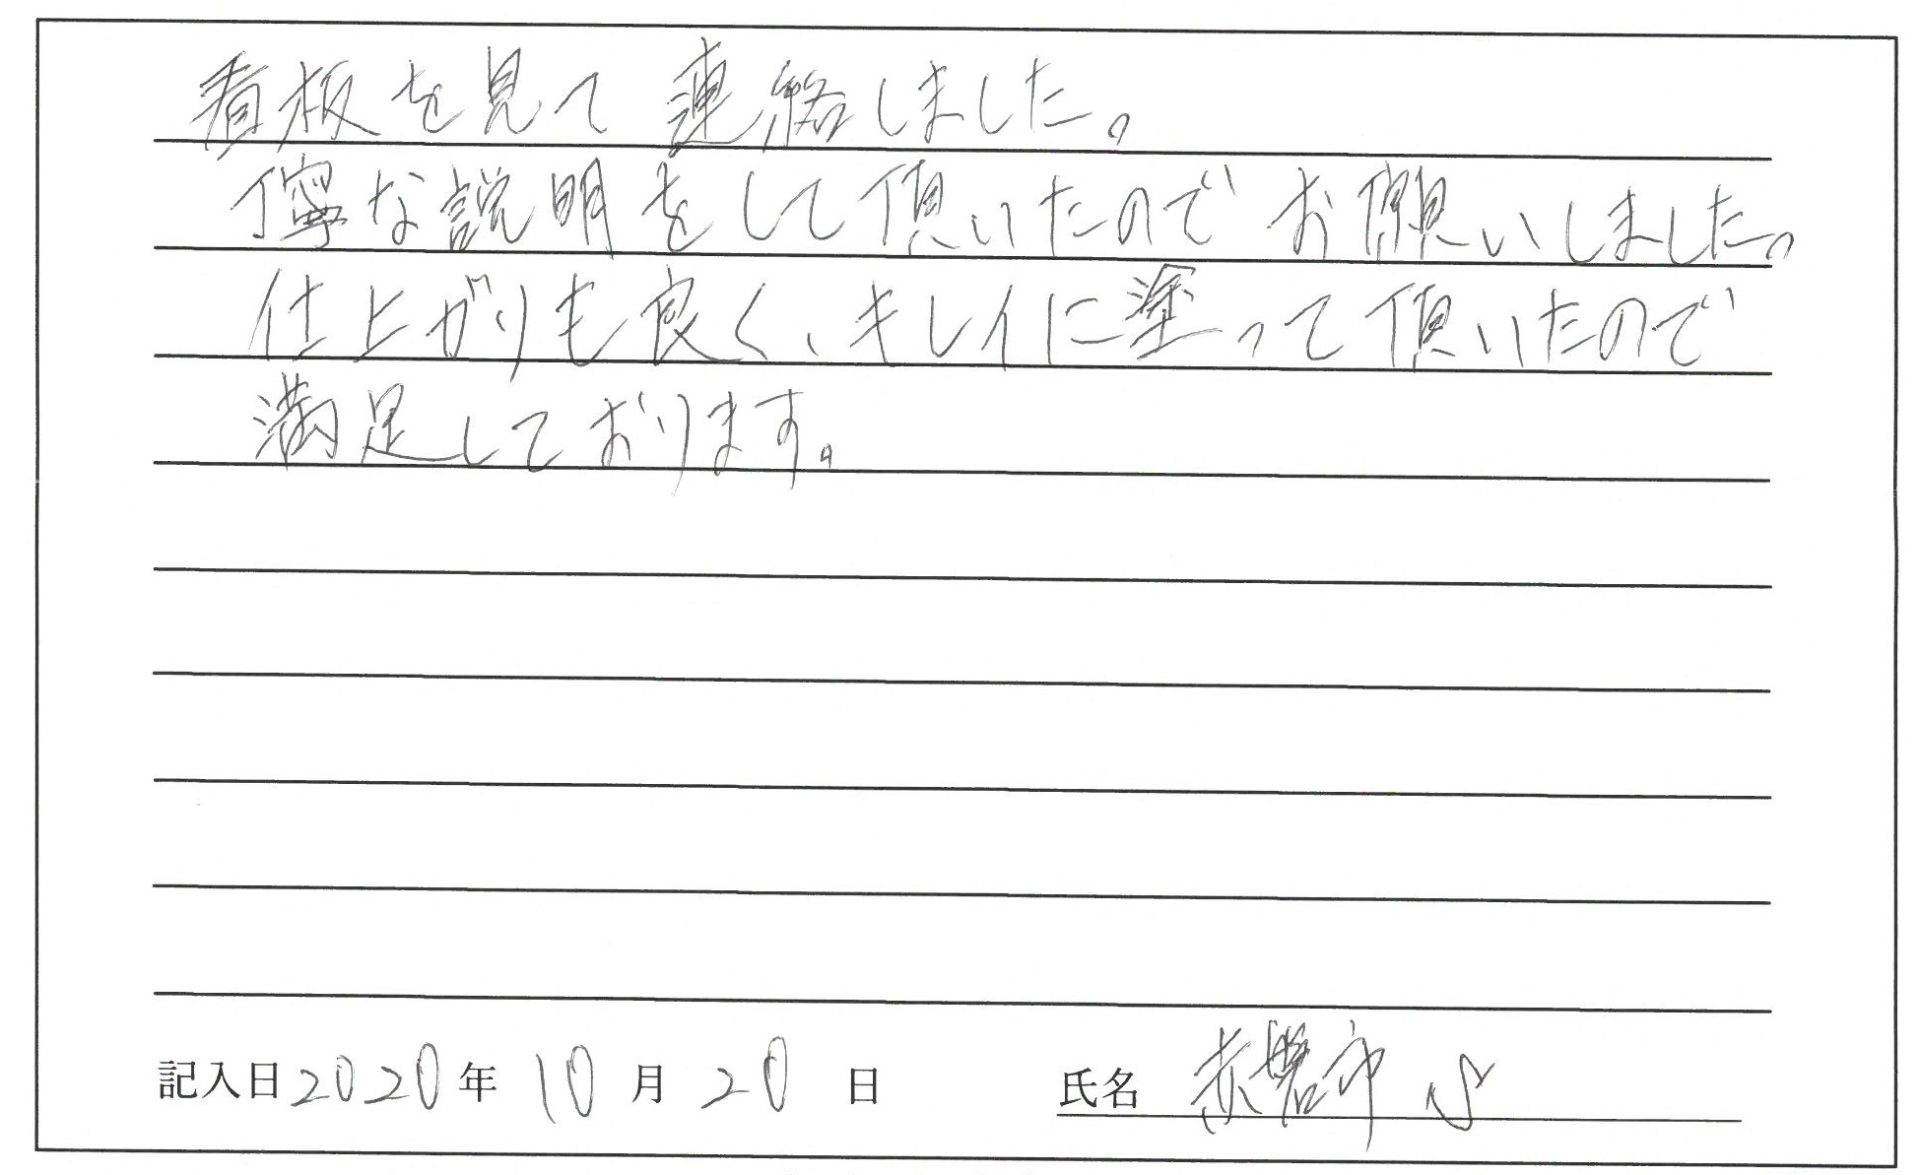 看板を見て連絡しました。
丁寧な説明をして頂いたのでお願いしました。
仕上がりも良く、キレイに塗って頂いたので
満足しております。
記入日 2020 年 10 月 20 日 氏名 赤磐市 S